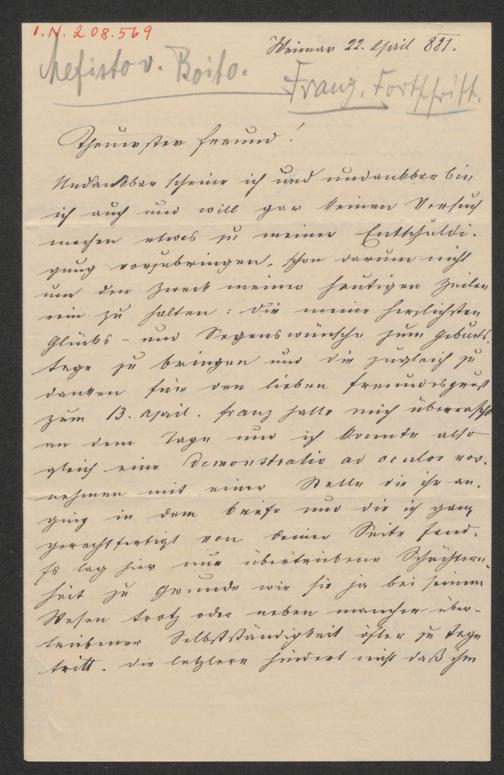 I.N. 208.569
Weimar 22. April 881.
Mefisto v. Boito.
Franz. Fortschritt.
Theuerster Freund!
Undankbar scheine ich und undankbar bin
ich auch und will gar keinen Versuch
machen etwas zu meiner Entschuldi-
gung vorzubringen, schon darum nicht
um den Zweck meiner heutigen Zeilen
rein zu halten: Dir meine herzlichsten
Glücks- und Segenswünsche zum Geburts-
tage zu bringen und Dir zugleich zu
danken für den lieben Freundesgruß
zum 13. April. Franz hatte mich überrascht
an dem Tage und ich konnte also
gleich eine Demonstratio ad oculos vor-
nehmen mit einer Stelle die ihn an-
ging in dem Briefe und die ich ganz
gerechtfertigt von Deiner Seite fand.
Es lag hier nur übertriebene Schüchtern-
heit zu Grunde wie sie ja bei seinem
Wesen trotz oder neben mancher über-
triebener Selbstständigkeit öfter zu Tage
tritt. Die letztere hindert nicht daß ihm